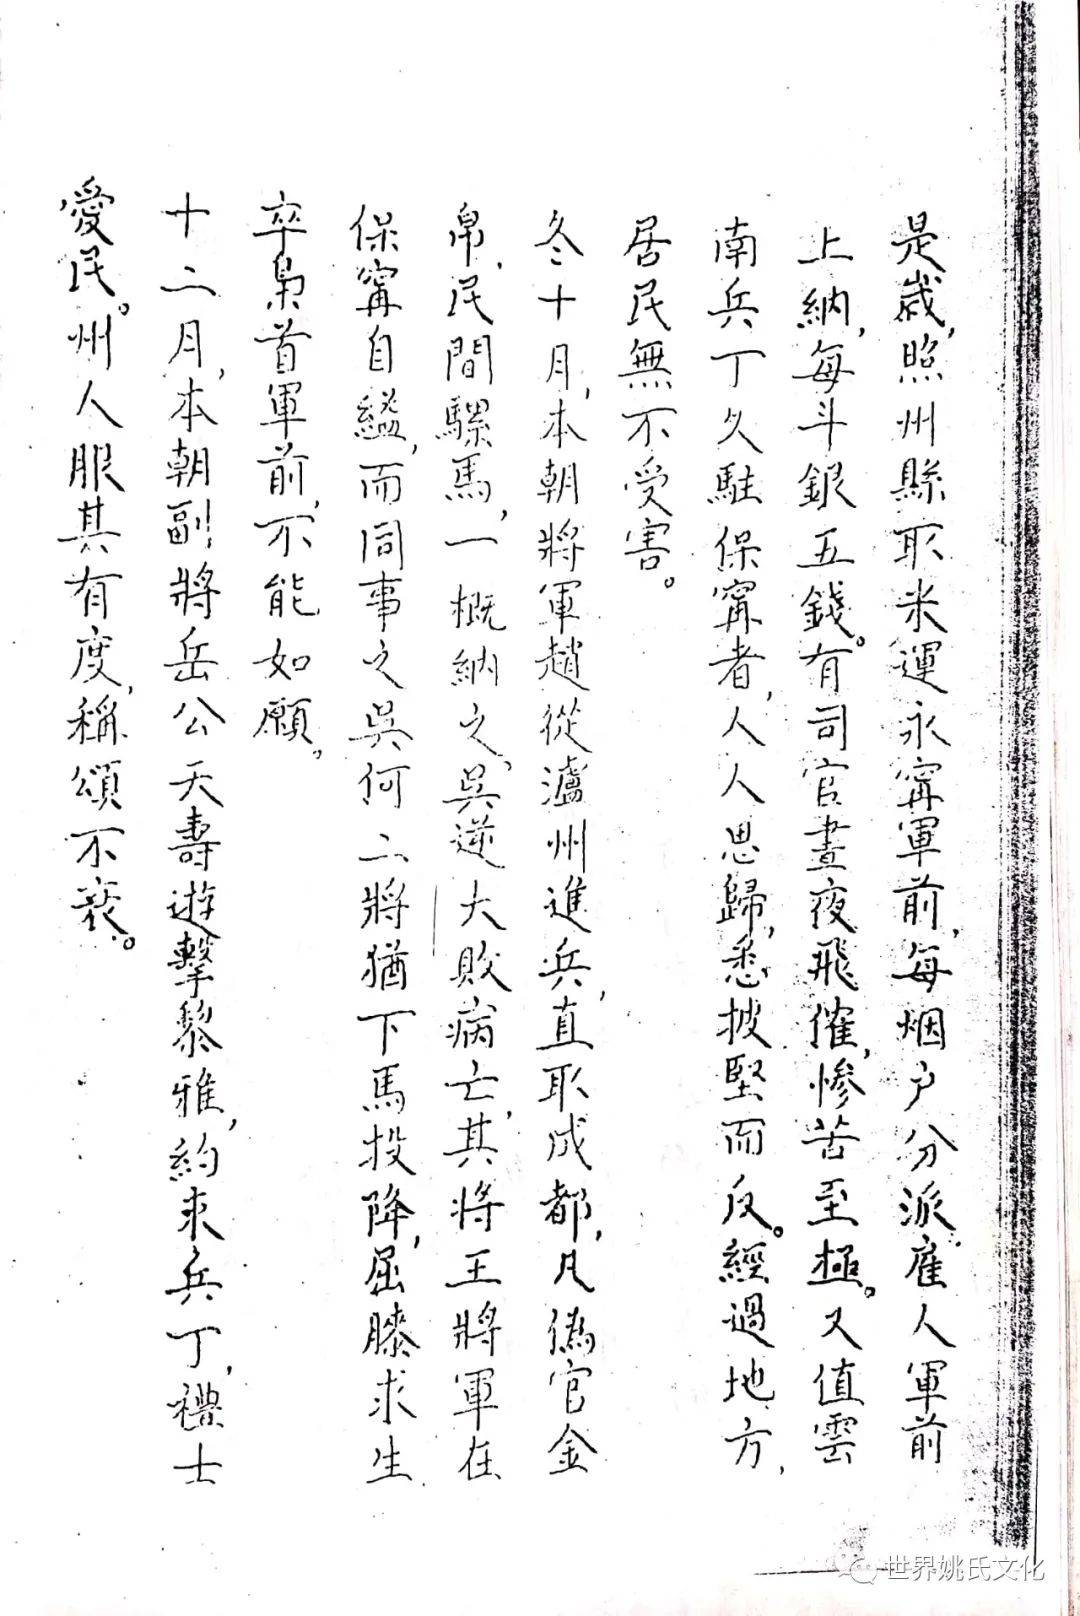 是歲，照州縣取米運永寧軍前，每烟户分派。雇人軍前
上納，每斗銀五錢。有司官晝夜飛催，慘苦至極。又值雲
南兵丁久駐保寧者，人人思歸，悉披堅而反。經過地方，
居民無不受害。
冬十月，本朝將軍趙從瀘州進兵，直取成都，凡偽官金
帛，民間騾馬，一概納之，吳逆大敗病亡，其將王將軍在
保寧自縊，而同事之吳何二將猶下馬投降，屈膝求生，
卒梟首軍前，不能如願。
十二月，本朝副將岳公天壽遊擊黎雅，約束兵丁，禮士
愛民。州人服其有度，稱頌不衰。
世界姚氏文化